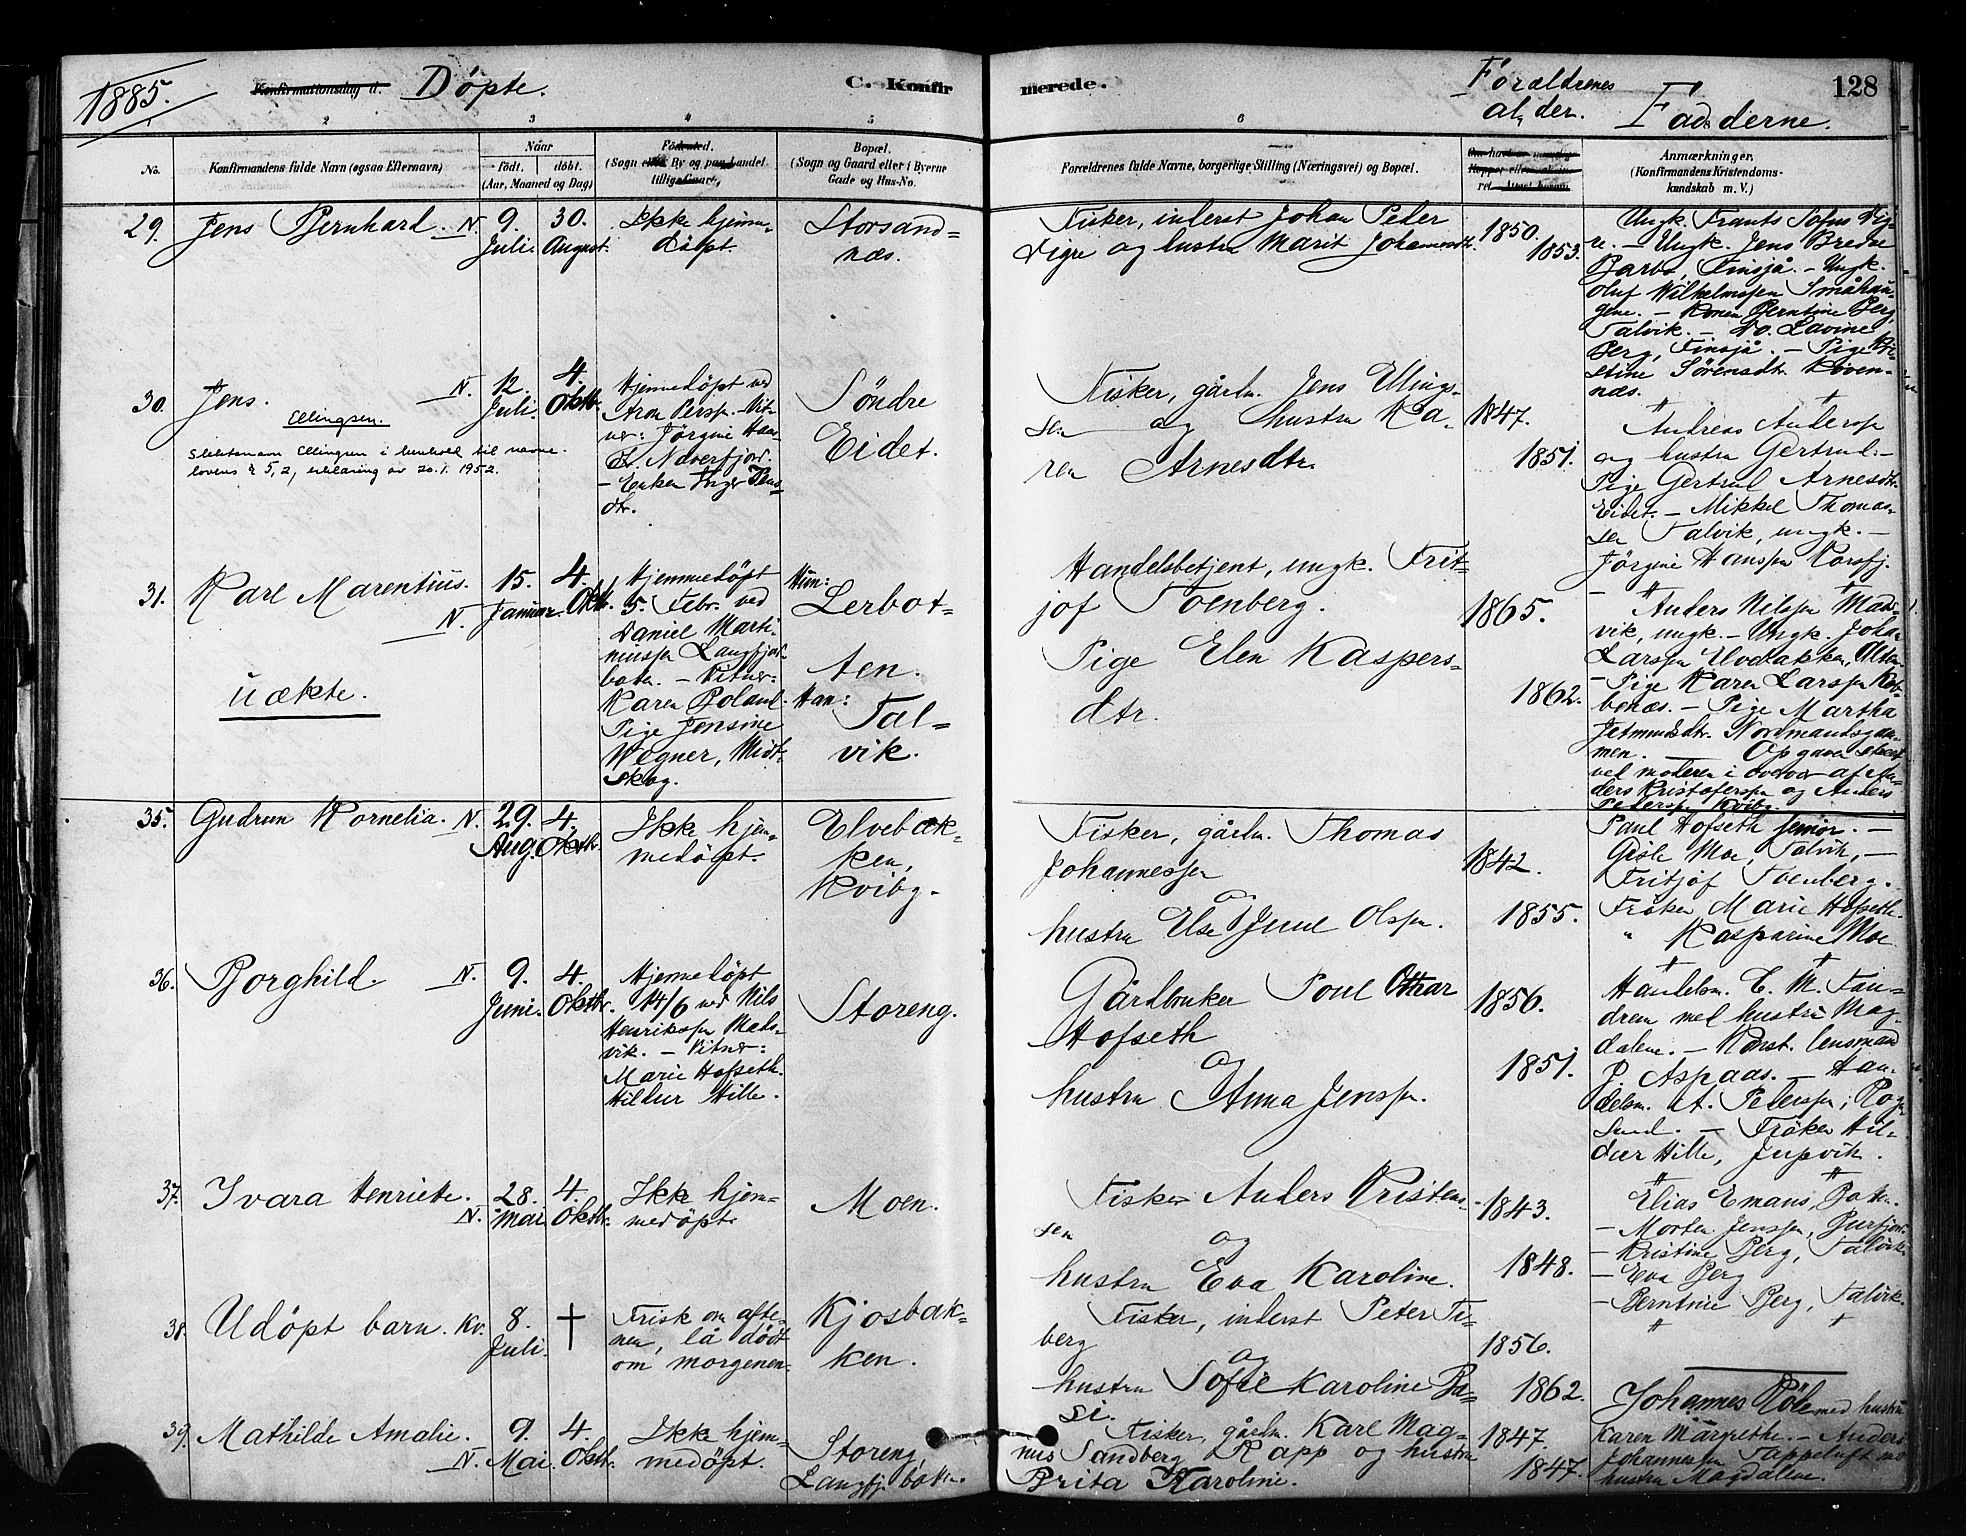 1885.
Konfirmationsdag d. Döpte.
C. Konfir
merede.
Forældrenes
alder.
Fadderne.
128
1 2 3 4 5 6
No.
Konfirmandens fulde Navn (egsaa Efternavn)
Naar
födt. döbt.
(Aar, Maaned og Dag)
Födested.
(Sogn eller By og paa Landet
tillige Gaard)
Bopæl.
(Sogn og Gaard eller i Byerne
Gade og Hus-No.
Forældrenes fulde Navne, borgerlige Stilling (Næringsvei) og Bopæl.
Anmærkninger.
(Konfirmandens Kristendoms-
kundskab m. V.)
29. Jens Bernhard. N.
9.
Juli.
30.
August.
Ikke hjemme
döpt.
Storsand=
næs.
Fisker, inderst Johan Peter
Digre og hustru Marit Johannesdtr.
1850.
1853.
Ungk. Frants Sofus Dig-
re. – Ungk. Jens Bredne
Finsjå. – Ungk.
Oluf Wilhelmssen Småhau-
gene. – Konen Berntine Berg,
Talvik. – Do. Lavine
Berg, Finsjå. – Pige Kri-
stine Sörensdtr. Roven-
næs.
30. Jens. N.
Ellingsen.
Slektsnavn Ellingsen i henhold til navne-
lovens § 5,2, erklæring av 20.1.1952.
12.
Juli.
4.
Oktbr.
Hjemmedöpt ved
Aron Persp. – Vit-
ner: Jörgine Han-
– Enken Inger Jens-
dtr.
Söndre
Eidet.
Fisker, gårbr. Jens Elling-
sen og hustru Ka-
ren Arnesdtr.
1847.
1851.
Andreas Andersp
og hustru Gertrud. –
Pige Gertrud Arnesdtr.
Eidet. – Mikkel Thomas-
sen Talvik, ungk. –
Jörgine Hanspr Korsfj.
31. Karl Marentius.
N.
uækte.
15.
Januar.
4.
Oktbr.
Hjemmedöpt
5. Febr. ved
Daniel Marti-
niuspr Langfjord-
boten. – Vitner:
Karen Boland.
Pige Jensine
Wegner, Midt-
skog.
Hun:
Lerbot-
ten.
Han:
Tal=
vik.
Handelsbetjent, ungk. Frit-
jof Foenberg.
Pige Elen Kaspers-
dtr.
1865.
1862.
– Anders Nilspr Mads-
vik, ungk. – Ungk. Johan
Larspr Alten.
– Pige Karen Larspr
– Pige Martha
Jetmundsdtr. Nordmandsgam-
men. – Opgaven
ved moderen i overvær af An-
ders Kristoferspr og Anders
Peterspr Kvibg.
35. Gudrun Kornelia. N.
29.
Aug.
4.
Oktbr.
Ikke hjem-
medöpt.
Elvebak-
ken,
Kvibg.
Fisker, gårbr. Thomas
Johannespr
og
hustru Else Juul Olspr.
1842.
1855.
Paul Hofseth senior. –
Gisle Moe, Talvik, –
Fritjof Foenberg.
Fröken Marie Hofseth.
" Kasparine Moe
36. Borghild. N.
9.
Juni.
4.
Oktbr.
Hjemmedöpt
14/6 ved Nils
Henrikspr Mads-
vik. – Vitner:
Marie Hofseth.
Hildur Hille.
Storeng.
Gårdbruker Poul Ottar
Hofseth
og
hustru Anna Jenspr.
1856.
1851.
Handelsm. C. M. Fan-
drem med hustru Mag-
dalene. – Konst. lensmand
P. Aspaas. – Han-
delsm. A. Peterspr, Rogn-
sund. – Fröken Hil-
dur Hille, Jupvik.
37. Ivara Henriette.
N.
28.
Mai
4.
Oktbr.
Ikke hjem-
medöpt.
Moen.
Fisker Anders Kristen-
sen
og
hustru Eva Karoline.
1843.
1848.
Elias Emaus,
– Morten Jenspr,
– Kristine Berg, Talvik.
– Eva Berg
– Berntine Berg, Talvik.
38. Udöpt barn. Kv.
8.
Juli.
†
Frisk om afte-
nen, lå dödt
om morgenen.
Kjosbak-
ken.
Fisker, inderst Peter Ti-
berg
og
hustru Sofie Karoline Ba-
si.
1856.
1862.
39. Mathilde Amalie.
N.
9.
Mai.
4.
Oktbr.
Ikke hjem-
medöpt.
Storeng,
Langfj. boten.
Fisker, gårbr. Karl Mag-
nus Sandberg Rapp og hustru
Brita Karoline.
1847.
1847.
Johannes Röle med hustru
Karen Margrethe. – Anders
Johannesen Tappeluft
hustru Magdalene.